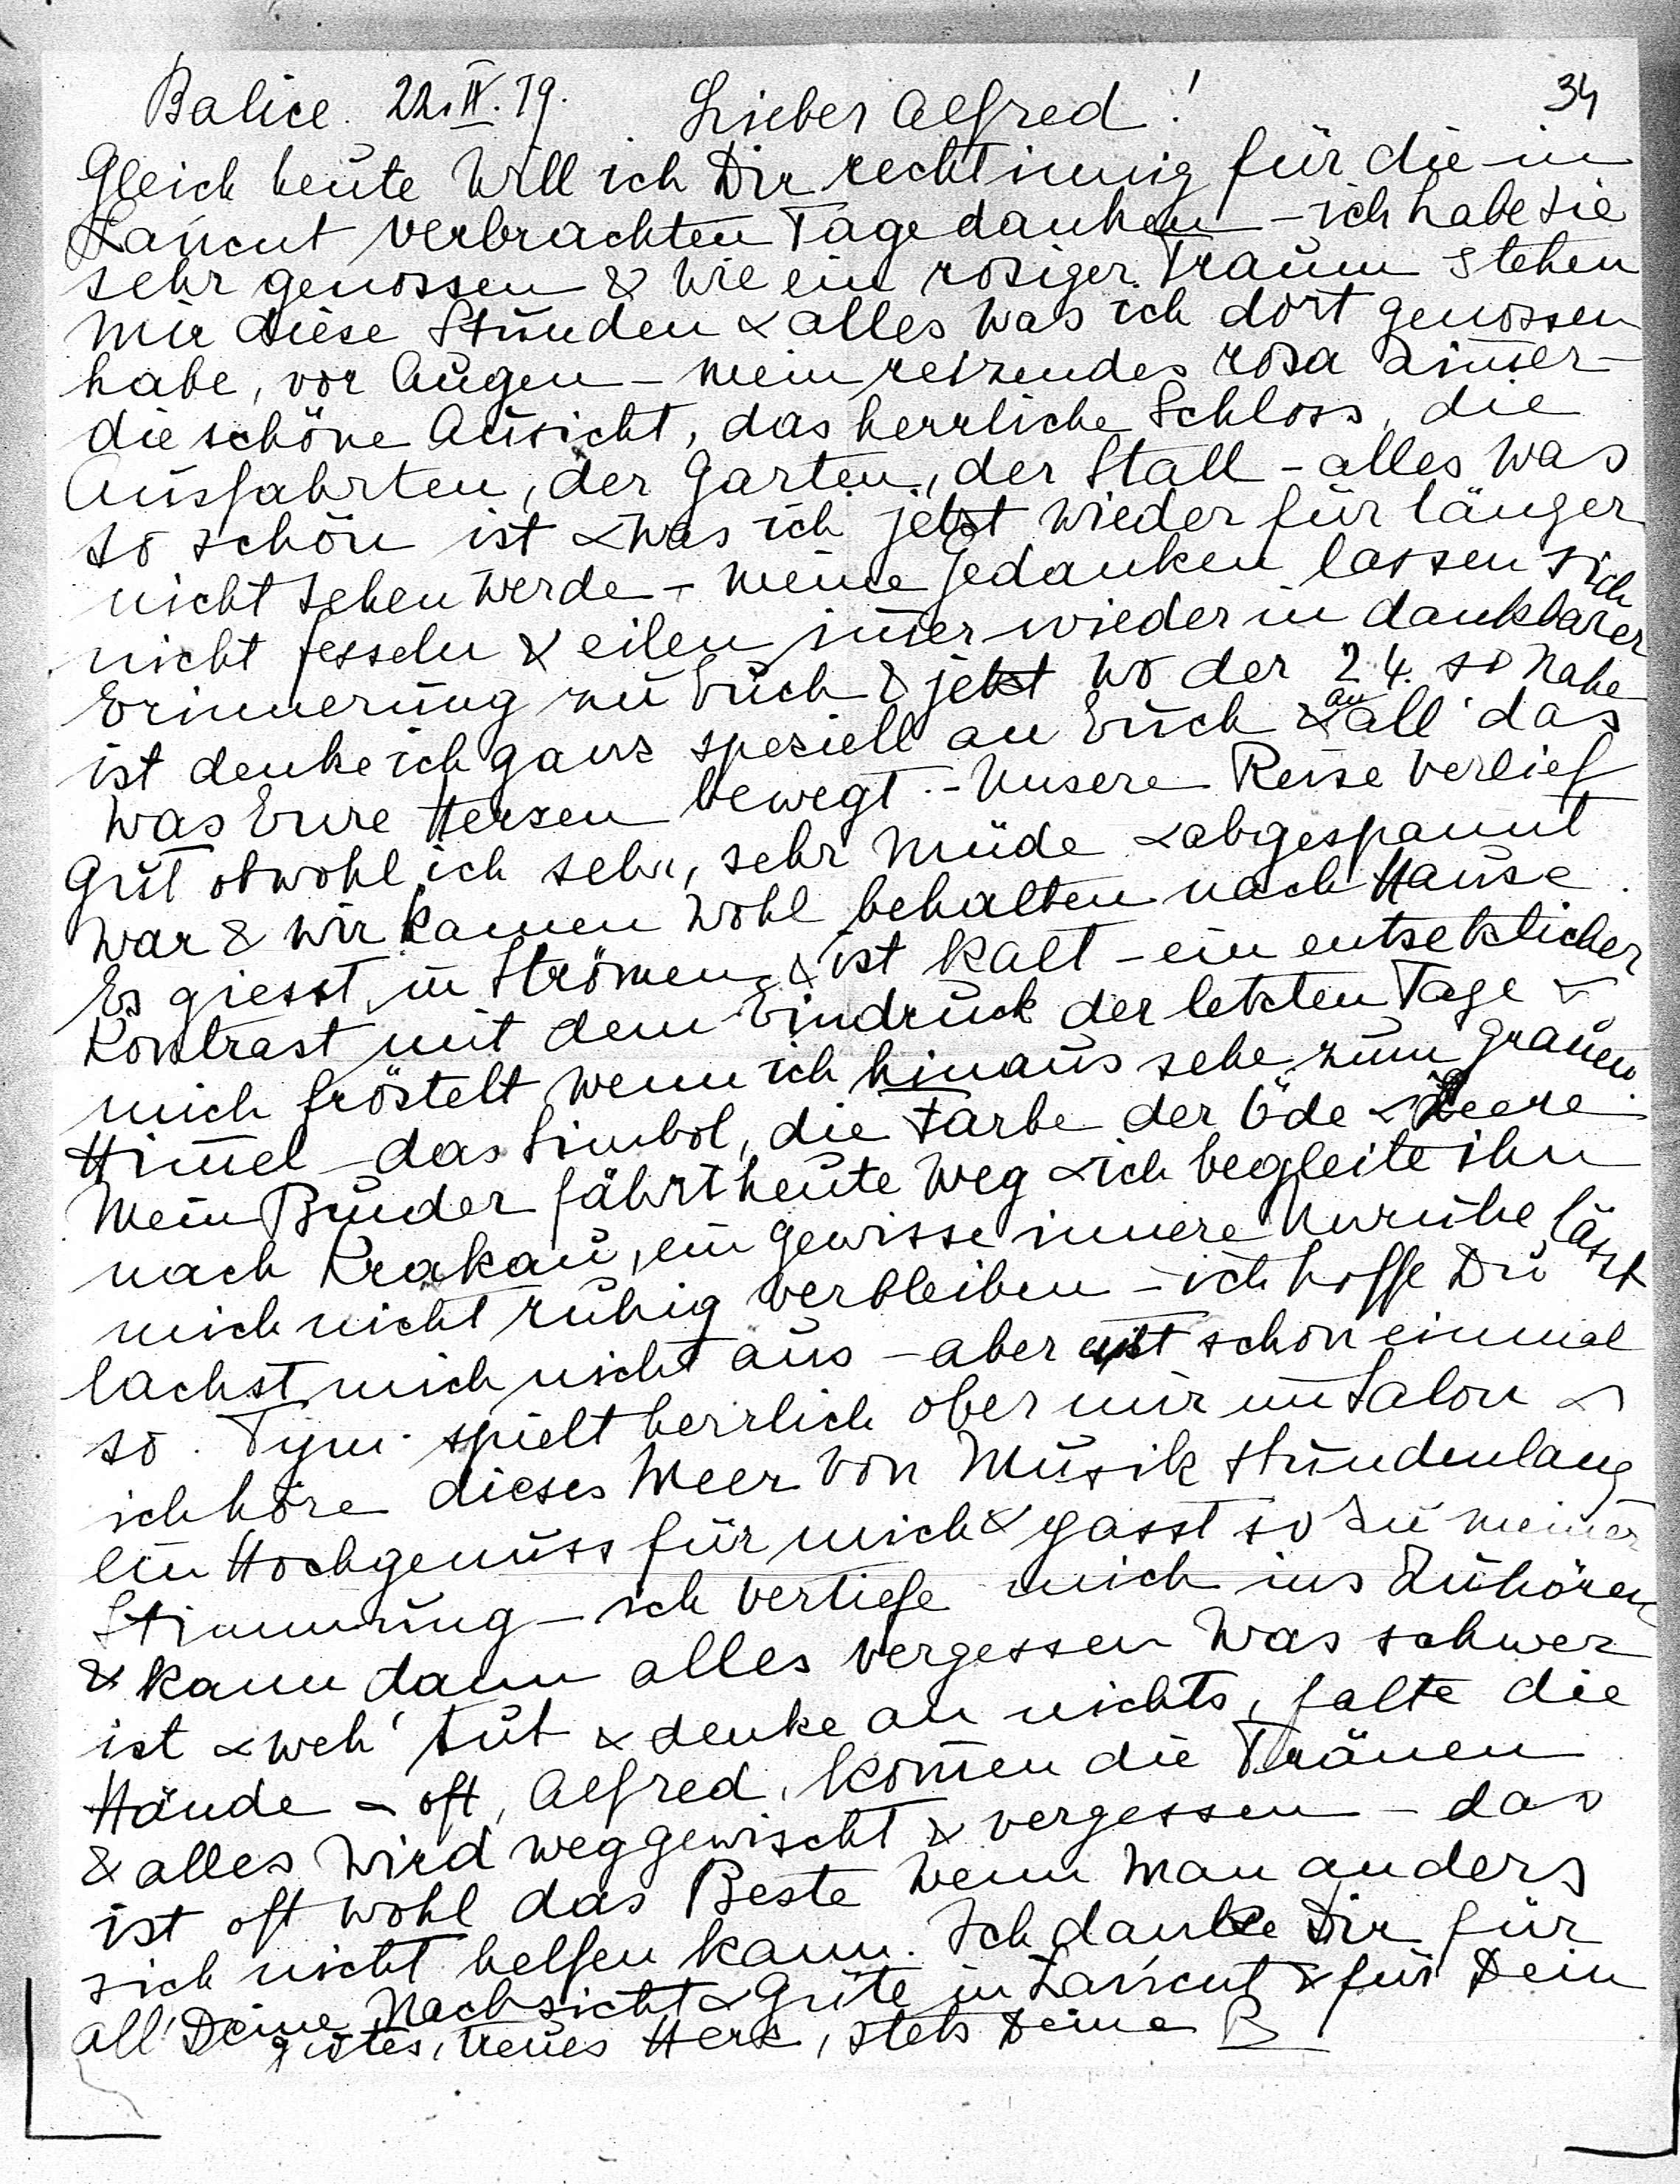 Balice. 22. IV. 19. Lieber Alfred! 34
Gleich heute will ich Dir recht innig für die in
Łańcut verbrachten Tage danken – ich habe sie
sehr genossen & wie ein rosiger Traum stehen
mir diese Stunden & alles was ich dort genossen
habe, vor Augen – mein reizendes rosa Zim̄er –
die schöne Aussicht, das herrliche Schloss, die
Ausfahrten, der Garten, der Stall – alles was
so schön ist & was ich jetzt wieder für länger
nicht sehen werde – meine Gedanken lassen sich
nicht fesseln & eilen im̄er wieder in dankbarer
Erinnerung zu Euch & jetzt wo der 24. so nahe
ist denke ich ganz speziell an Euch & an all' das
was Eure Herzen bewegt. – Unsere Reise verlief
gut obwohl ich sehr, sehr müde & abgespannt
war & wir kamen wohl behalten nach Hause.
Es giesst in Strömen & ist kalt – ein entsetzlicher
Kontrast mit dem Eindruck der letzten Tage &
mich fröstelt wenn ich hinaus sehe zum grauen
Him̄el – das Simbol, die Farbe der Öde & Leere.
Mein Bruder fährt heute weg & ich begleite ihn
nach Krakau, ein gewisse innere Unruhe lässt
mich nicht ruhig verbleiben – ich hoffe Du
lachst mich nicht aus – aber ist schon einmal
so. Tym. spielt herrlich ober mir im Salon &
ich höre dieses Meer von Musik stundenlang
ein Hochgenuss für mich & passt so zu meiner
Stimmung – ich vertiefe mich ins Zuhören
& kann dann alles vergessen was schwer
ist & weh' tut & denke an nichts, falte die
Hände – oft, Alfred, kom̄en die Tränen
& alles wird weggewischt & vergessen – das
ist oft wohl das Beste wenn man anders
sich nicht helfen kann. Ich danke Dir für
all' Deine Nachsicht & Güte in Łańcut & für Dein
gutes, treues Herz, stets Deine B